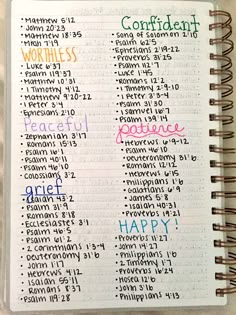 • Matthew 6:12
• John 20:23
• Matthew 18:35
• Micah 7:19
WORTHLESS
• Luke 6:37
• Psalm 119:37
• Matthew 10:31
• 1 Timothy 4:12
• Matthew 9:20-22
• 1 Peter 3:4
• Ephesians 2:10
Peaceful
• Zephaniah 3:17
• Romans 15:13
• Psalm 16:1
• Psalm 40:11
• Psalm 46:10
• Colossians 3:2
grief
• Isaiah 43:2
• Psalm 31:9
• Romans 8:18
• Ecclesiastes 3:1
• Psalm 46:5
• Psalm 61:2
• 2 Corinthians 1:3-4
• deuteronomy 31:6
• John 16:1
• Hebrews 4:12
• Isaiah 55:11
• Romans 8:37
• Psalm 119:28
Confident
• Song of Solomon 2:10
• Psalm 62:5
• Ephesians 2:19-22
• Proverbs 31:25
• Psalm 112:7
• Luke 1:45
• Romans 12:2
• 1 Timothy 2:9-10
• 1 Peter 3:4
• Psalm 31:30
• 1 Samuel 16:7
• Psalm 139:14
patience
• Hebrews 6:9-12
• Psalm 46:10
• deuteronomy 31:6
• Hebrews 6:15
• Philippians 1:6
• Galatians 6:9
• James 5:8
• Isaiah 40:31
• Proverbs 19:21
HAPPY!
• Proverbs 11:27
• John 14:27
• Philippians 1:6
• 1 Timothy 2:2
• Proverbs 16:24
• Hosea 12:6
• John 3:16
• Philippians 4:13